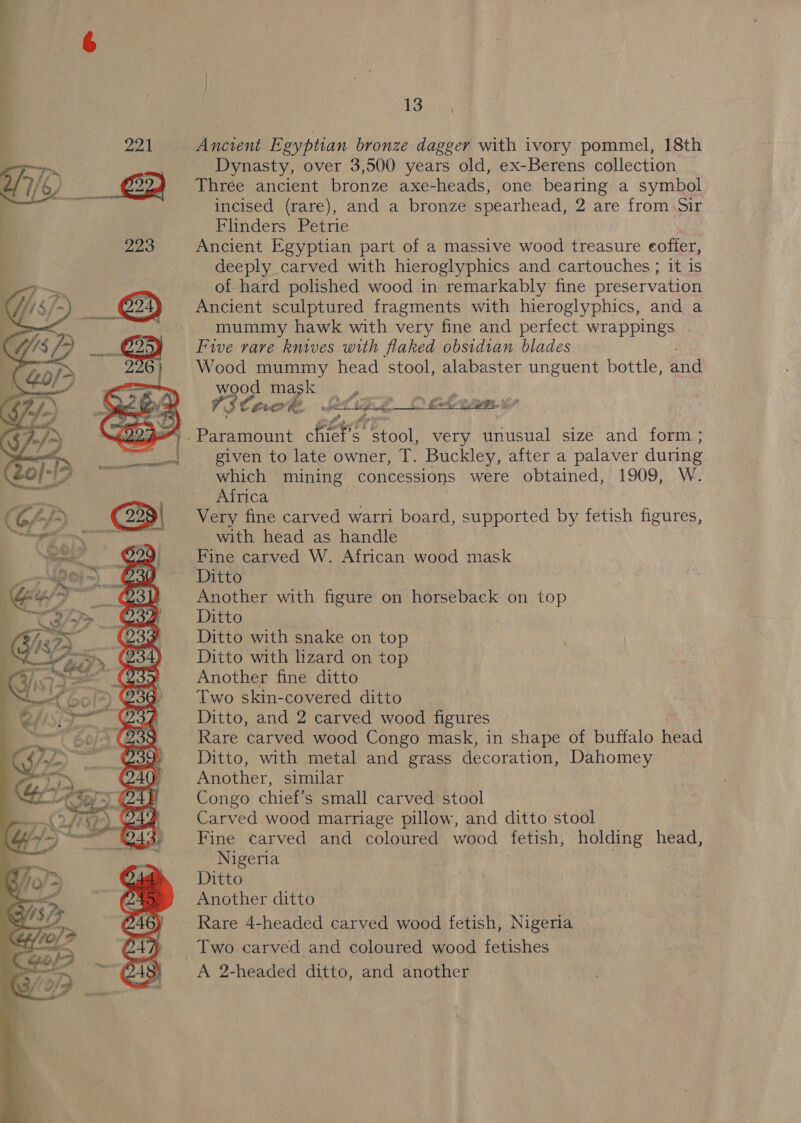 6
13
221 Ancient Egyptian bronze dagger with ivory pommel, 18th
Dynasty, over 3,500 years old, ex-Berens collection
2/7/6) 222 Three ancient bronze axe-heads, one bearing a symbol
incised (rare), and a bronze spearhead, 2 are from Sir
Flinders Petrie
223 Ancient Egyptian part of a massive wood treasure coffer,
deeply carved with hieroglyphics and cartouches ; it is
of hard polished wood in remarkably fine preservation
224 Ancient sculptured fragments with hieroglyphics, and a
mummy hawk with very fine and perfect wrappings
225 Five rare knives with flaked obsidian blades
226 Wood mummy head stool, alabaster unguent bottle, and
wood mask
227 Paramount chief's stool, very unusual size and form ;
given to late owner, T. Buckley, after a palaver during
which mining concessions were obtained, 1909, W.
Africa
228 Very fine carved warri board, supported by fetish figures,
with head as handle
229 Fine carved W. African wood mask
230 Ditto
231 Another with figure on horseback on top
232 Ditto
233 Ditto with snake on top
234 Ditto with lizard on top
235 Another fine ditto
236 Two skin-covered ditto
237 Ditto, and 2 carved wood figures
238 Rare carved wood Congo mask, in shape of buffalo head
239 Ditto, with metal and grass decoration, Dahomey
240 Another, similar
241 Congo chief's small carved stool
242 Carved wood marriage pillow, and ditto stool
243 Fine carved and coloured wood fetish, holding head,
Nigeria
244 Ditto
245 Another ditto
246 Rare 4-headed carved wood fetish, Nigeria
247 Two carved and coloured wood fetishes
248 A 2-headed ditto, and another